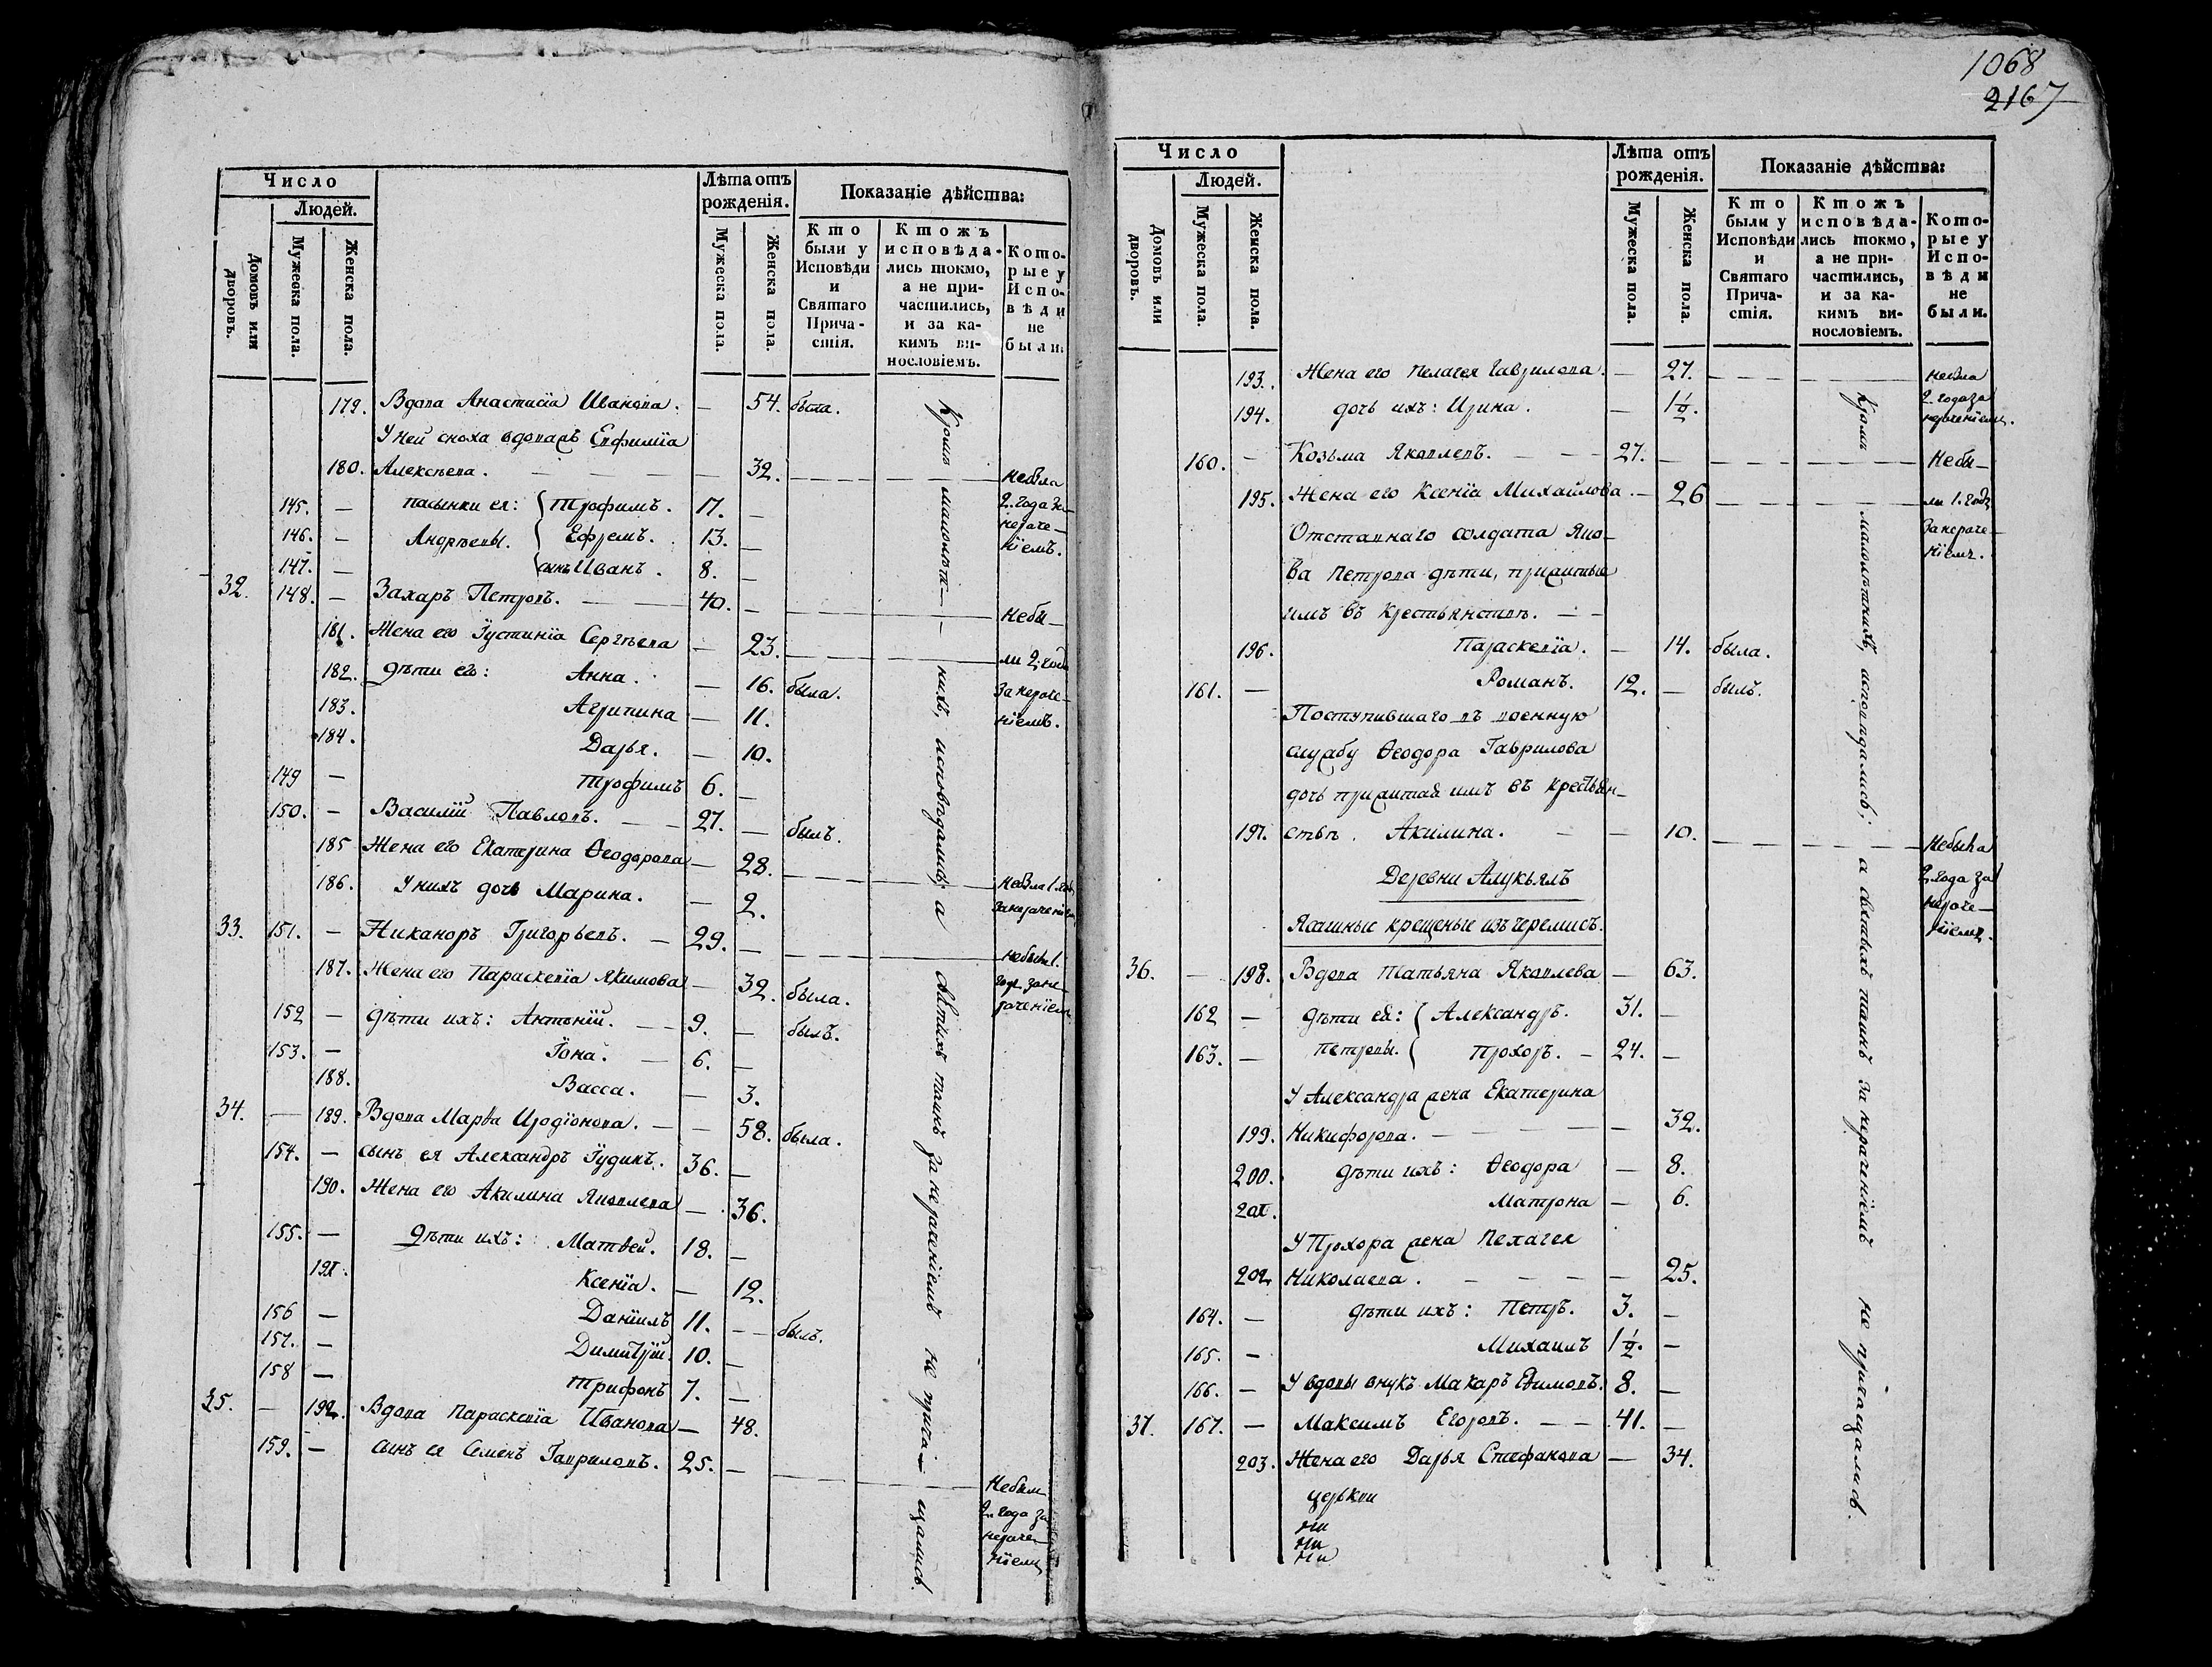 1068
2167
Число
Людей.
Домовъ или дворовъ.
Мужеска пола.
Женска пола.
Лѣта отъ рожденія.
Мужеска пола.
Женска пола.
Показаніе дѣйства:
Кто были у Исповѣди и Святаго Причастія.
Ктожъ исповѣдались токмо, а не причастились, и за какимъ винословіемъ.
Которые у Исповѣди не были.
179. Вдова Анастасіа Иванова. — 54. была.
У ней сноха вдовасъ Евфиміа
180. Алексѣева. — 32. небыла
145. — пасынки ея: Трофимъ. 17. — 2. года за
нераче-
146. — Андрѣевы. Ефремъ. 13. — ніемъ.
147. — сынъ Иванъ. 8. —
32. 148. — Захаръ Петровъ. 40. — Небы-
181. Жена его Іустиніа Сергѣева — 23. ли 2. года
182. дѣти его: Анна. — 16. была. за нераче-
183. Агрипина — 11. ніемъ.
184. Дарья. — 10.
149 — Трофимъ 6. —
150. — Василій Павловъ. 27. — былъ.
185 Жена его Екатерина Ѳеодорова — 28.
186. У нихъ дочь Марина. — 2.
33. 151. — Никаноръ Григорьевъ. — 29. —
187. Жена его Параскевіа Якимова — 32. была.
152 — дѣти ихъ: Антоній. 9. — былъ.
153. — Іона. 6. —
188. Васса. — 3.
34. — 189. Вдова Марѳа Иродіонова. — 58. была.
154. — сынъ ея Александръ Іудинъ. 36. —
190. Жена его Акилина Яковлева — 36.
155. — дѣти ихъ: Матвей. 18. —
191. Ксеніа. — 12.
156 — Даніилъ 11. — былъ.
157. — Димитрій. 10. —
158 — Трифонъ 7. —
35. — 192. Вдова Параскевіа Иванова — 48.
159. — сынъ ея Семенъ Гавриловъ. 25. —
Небыли
2. года за
нераче-
ніемъ
Кромѣ малолѣт-нихъ, исповѣдались, а святыхъ таинъ за нераченіемъ не прича-щались.
Число
Людей.
Домовъ или дворовъ.
Мужеска пола.
Женска пола.
Лѣта отъ рожденія.
Мужеска пола.
Женска пола.
Показаніе дѣйства:
Кто были у Исповѣди и Святаго Причастія.
Ктожъ исповѣдались токмо, а не причастились, и за какимъ винословіемъ.
Которые у Исповѣди не были.
193. Жена его Пелагея Гаврилова. — 27. небыла
2. года за
194. дочь ихъ: Ирина. — 1½. нераченіемъ.
160. — Козьма Яковлевъ. 27. — Небы-
195. Жена его Ксеніа Михайлова. — 26 ли 1. годъ
Отставнаго солдата Яко- За нераче-
ва Петрова дѣти, прижитые ніемъ.
имъ въ крестьянствѣ.
196. Параскевіа. — 14. была.
161. — Романъ. 12. — былъ.
Поступившаго въ военную
службу Ѳеодора Гаврилова
дочь прижитая имъ въ крестьян-
197. ствѣ. Акилина. — 10. Небыла
Деревни Алукьялъ 2. года за
нераче-
Ясашные крещеные изъ черемисъ. ніемъ.
36. — 198. Вдова Татьяна Яковлева — 63.
162 — дѣти ея: Александръ. 31. —
163. — Петровы. Прохоръ. — 24. —
У Александра жена Екатерина
199. Никифорова. — 32.
200. дѣти ихъ: Ѳеодора — 8.
201. Матрона — 6.
У Прохора жена Пелагея
202. Николаева. — 25.
164. — дѣти ихъ: Петръ. 3. —
165. — Михаилъ 1½. —
166. — У вдовы внукъ Макаръ 8. —
37. 167. — Максимъ Егоровъ. 41. —
203. Жена его Дарья Стефанова — 34.
церкви
Кромѣ малолѣтнихъ, исповѣдались; а святыхъ таинъ за нераченіемъ не причащались.